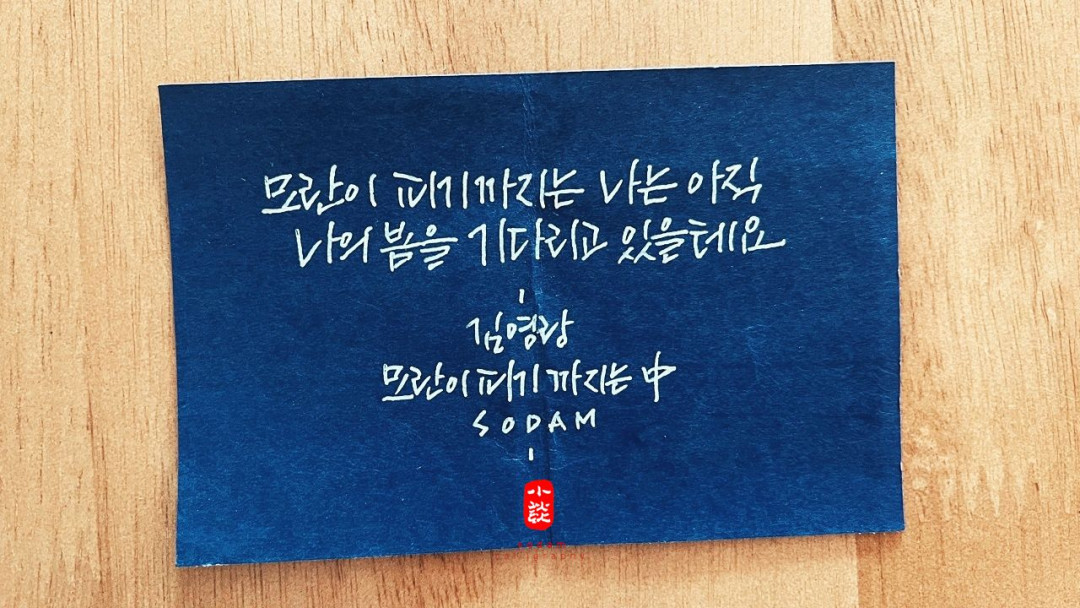 모란이 피기까지는 나는 아직
나의 봄을 기다리고 있을테요
김영랑
모란이 피기까지는 中
SODAM
小
談